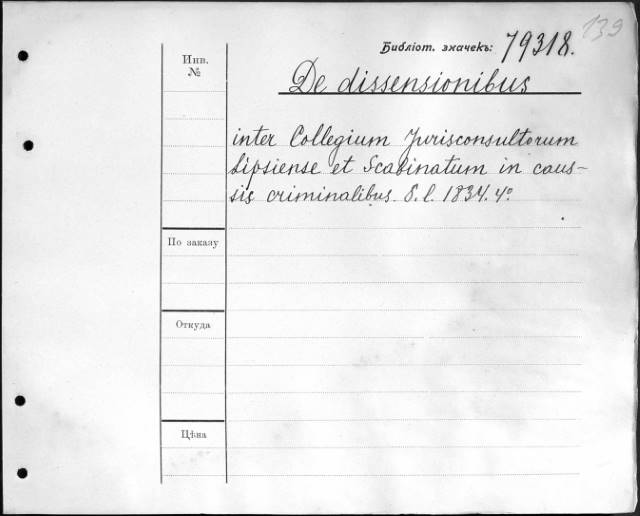 139
Библіот. значекъ: 79318.
Инв.
№
De dissensionibus
inter Collegium Jurisconsultorum
Lipsiense et Scabinatum in caus-
sis criminalibus. S. l. 1834. 4º.
По заказу
Откуда
Цѣна